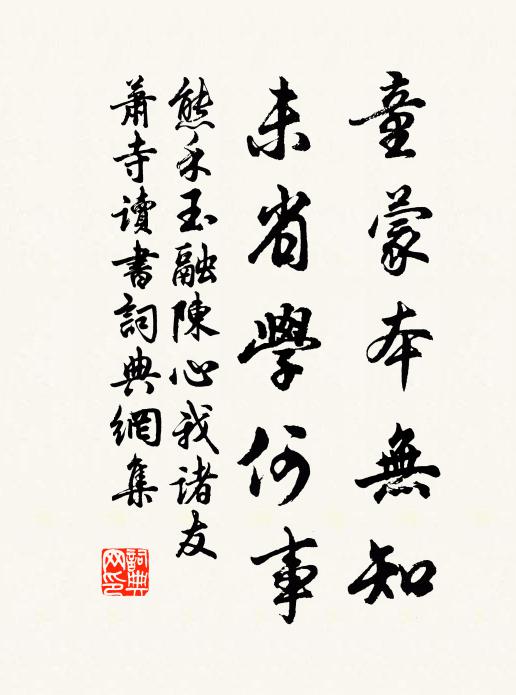 童蒙本無知
未省學何事
熊禾玉融陳心我諸友
蕭寺讀書詞典網集
詞典网印